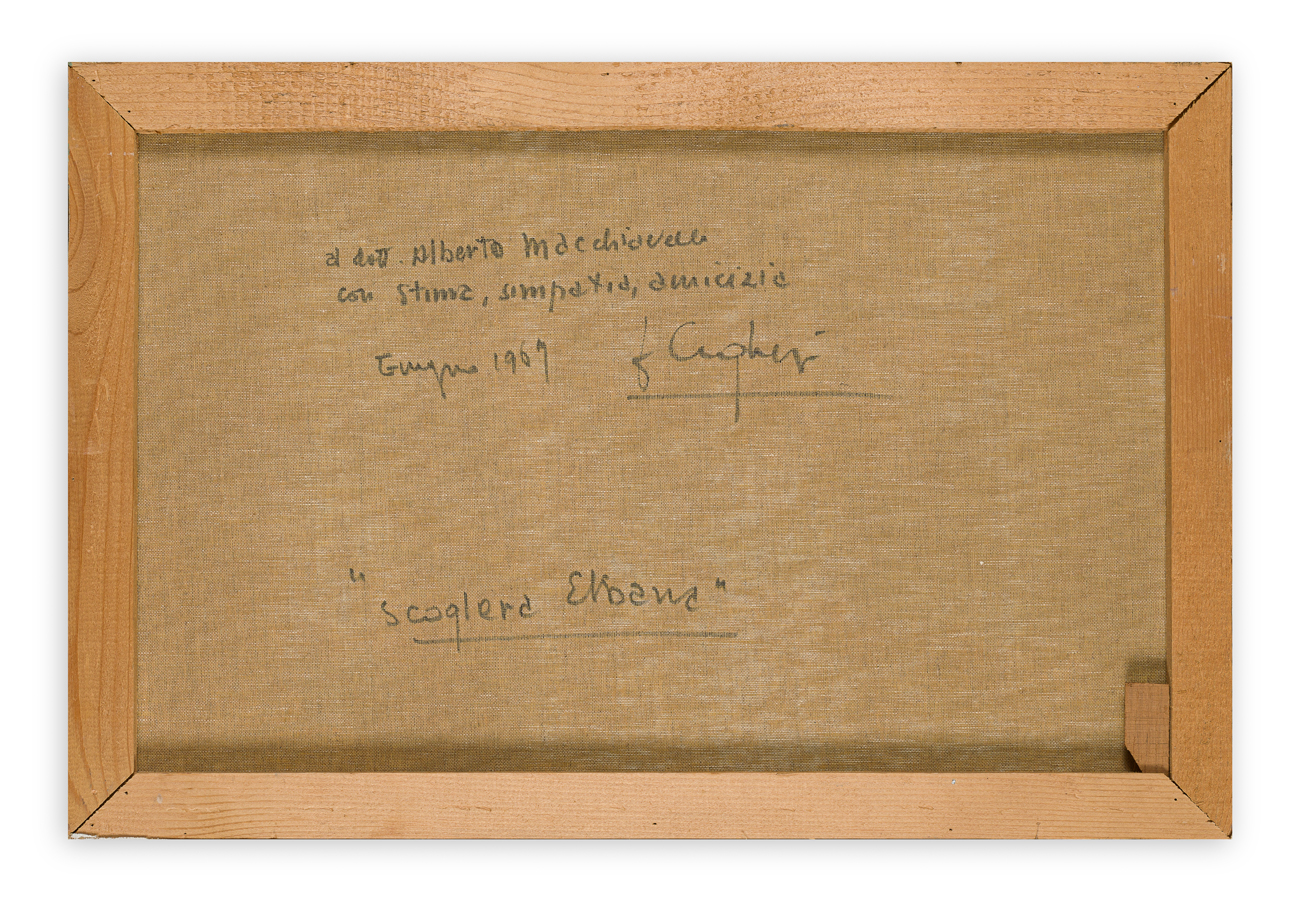 a dott. Alberto Macchiavelli
con stima, simpatia, amicizia
Giugno 1967
"Scogliera Elbana"